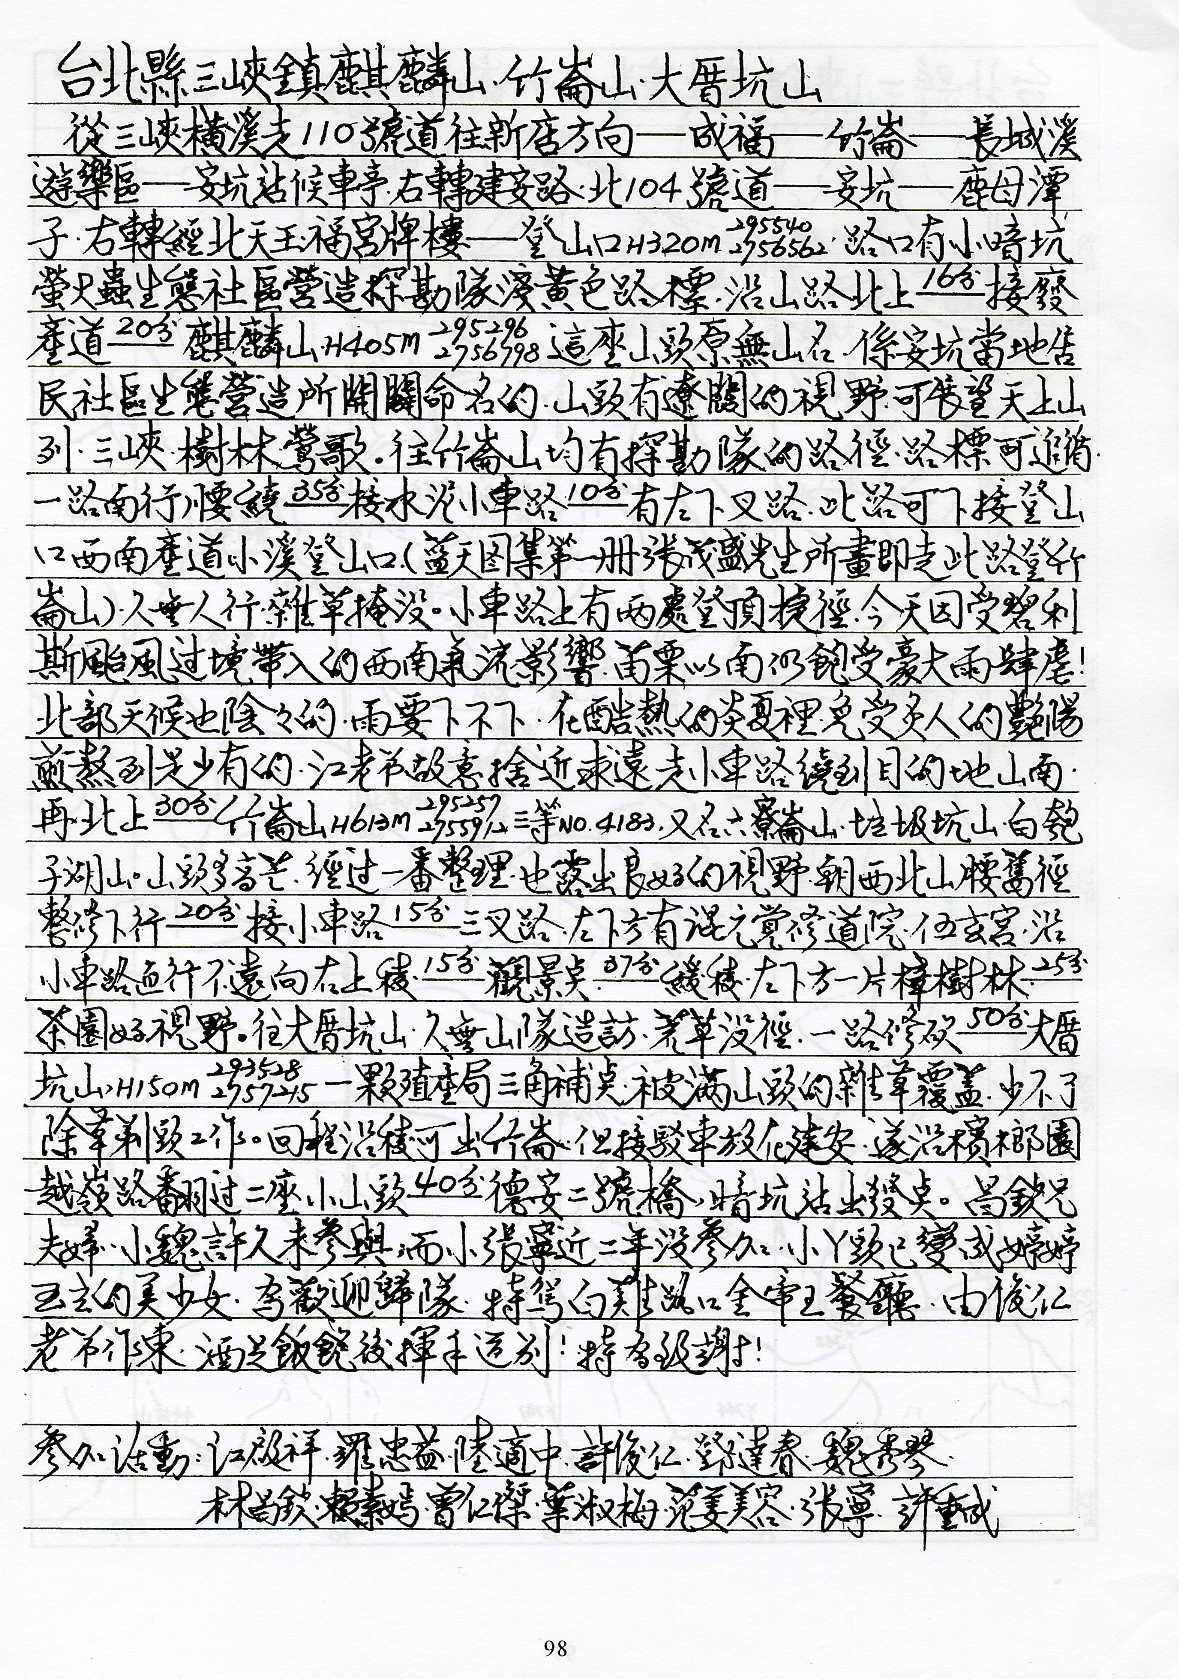 台北縣三峽鎮麒麟山.竹崙山.大厝坑山
從三峽橫溪走110號道往新店方向——成福——竹崙——長城溪
遊樂區——安坑站候車亭.右轉建安路.北104號道——安坑——鹿母潭
子.右轉經北天玉福宮牌樓——登山口H320M 295540 2756562.路口有小暗坑
螢火蟲生態社區營造探勘隊淺黃色路標.沿山路北上16分接廢
產道20分麒麟山H405M 295296 2756798這座山頭原無山名.係安坑當地居
民社區生態營造所開闢命名的.山頭有遼闊的視野.可展望天上山
列.三峽.樹林.鶯歌。往竹崙山均有探勘隊的路徑.路標可追循.
一路南行腰繞35分接水泥小車路10分有左下叉路.此路可下接登山
口西南產道小溪登山口.(藍天图集第一册張茂盛先生所畫即走此路登竹
崙山).久無人行.雜草掩沒。小車路上有兩處登頂捷徑.今天因受碧利
斯颱風过境帶入的西南氣流影響.苗栗以南仍飽受豪大雨肆虐!
北部天候也陰々的.雨要下不下.在酷熱的炎夏裡.免受炙人的艷陽
煎熬到是少有的.江老爷故意捨近求遠走小車路繞到目的地山南.
再北上30分竹崙山H613M 295257 2755912三等NO.4183.又名六寮崙山.垃圾坑山.白匏
子湖山。山頭多高芒.經过一番整理.也露出良好的視野.朝西北山腰舊徑
整修下行20分接小車路15分三叉路.左下方有混元覺修道院.伍玄宮.沿
小車路直行不遠向右上稜.15分觀景点.37分緩稜.左下方一片樟樹林.25分
茶園好視野。往大厝坑山.久無山隊造訪.荒草没徑.一路修砍50分大厝
坑山.H150M 293528 2757215一顆殖產局三角補点.被滿山頭的雜草覆蓋.少不了
除草剃頭工作。回程沿稜可出竹崙.但接駁車放在建安.遂沿檳榔園
越嶺路翻过二座小山頭40分德安二號橋.暗坑站出發点。昌鎖兄
夫婦.小魏許久未參與.而小張寧近二年没參加.小丫頭已變成婷婷
玉立的美少女.為歡迎歸隊.特駕白雞路口金帝王餐廳.由俊仁
老爷作東.酒足飯飽後揮手道別!特為致謝!
參加活動:江啟祥.羅忠益.陸適中.許俊仁.鄧達春.魏秀琴.
林昌鎖.賴素嫣.曾仁傑.葉淑梅.范姜美容.張寧.許重成
98